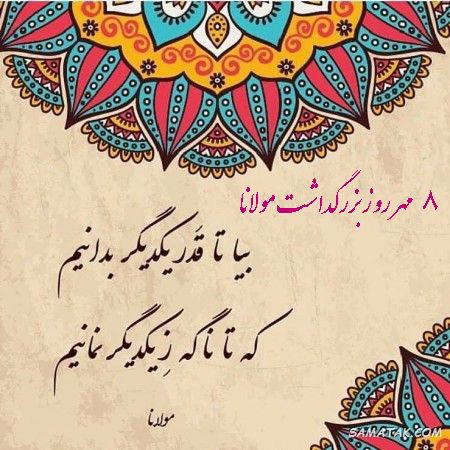 ۸ مهر روز بزرگداشت مولانا
بیا تا قَدر یکدیگر بدانیم
که تا ناگه زِ یکدیگر نمانیم
مولانا
SAMATAK.COM